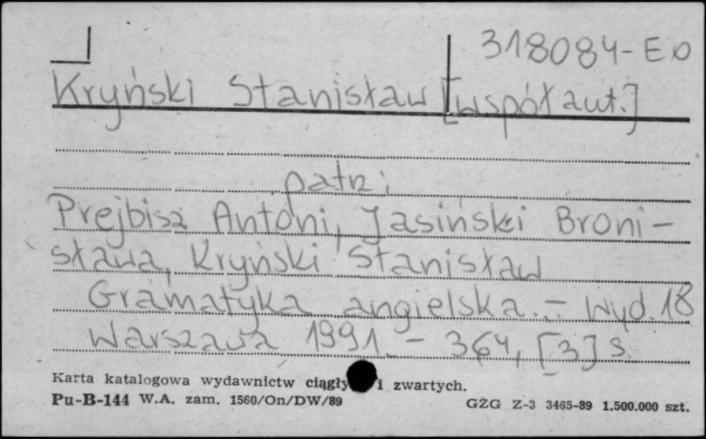 318084-E0
Kryński Stanisław [współaut.]
patrz:
Prejbisz Antoni, Jasińska Broni-
sława, Kryński Stanisław
Gramatyka angielska. – Wyd. 18
Warszawa 1991. – 364, [3] s.
Karta katalogowa wydawnictw ciągły i zwartych.
Pu-B-144 W.A. zam. 1560/On/DW/89
GZG Z-3 3465-89 1.500.000 szt.